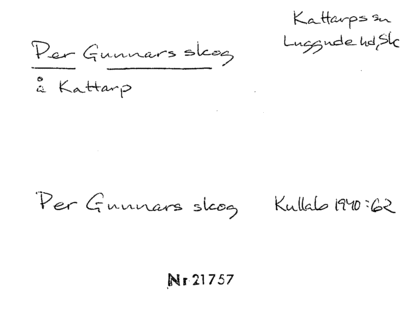 Kattarps sn
Luggude hd, Sk
Per Gunnars skog
å Kattarp
Per Gunnars skog Kullab 1940:62
Nr 21757